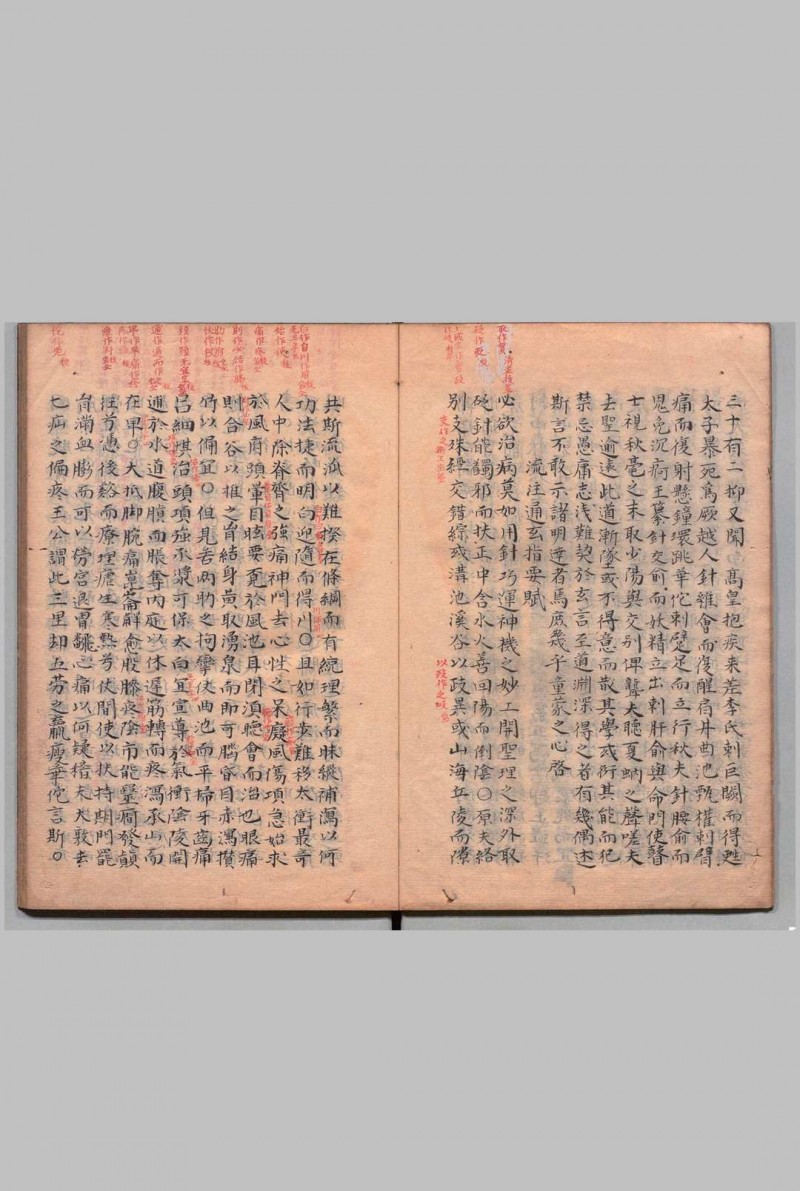 三十有二抑又聞髙皇抱疾未瘥李氏刺巨闕而得甦
太子暴死為厥越人針維會而復醒肩井曲池甄權刺臂
痛而復射懸鐘環跳華佗刺躄足而立行秋夫針腰俞而
鬼免沉痾王纂針交俞而妖精立出刺肝俞與命門使瞽
士視秋毫之末取少陽與交別俾聾夫聽夏蚋之聲嗟夫
去聖逾遠此道漸墜或不得意而散其學或衒其能而犯
禁忌愚庸志淺難契於玄言至道淵深得之者有幾偶述
斯言不敢示諸明達者焉庶幾乎童蒙之心啓
流注通玄指要賦
必欲治病莫如用針巧運神機之妙工開聖理之深外取
砭針能蠲邪而扶正中含水火善回陽而倒陰○原夫絡
別支殊經交錯綜或溝池溪谷以歧異或山海丘陵而隙
共斯流派以難揆在條綱而有統理繁而昧縱補瀉以何
功法捷而明白迎隨而得川○且如行步難移太衝最奇
人中除脊膂之強痛神門去心性之呆癡風傷項急始求
於風府頭暈目眩要覓於風池耳閉須聽會而治也眼痛
則合谷以推之胷結身黄取湧泉而即可腦昏目赤瀉攢
竹以偏宜○但見苦兩肋之拘攣仗曲池而平掃牙齒痛
呂細堪治頭項強承漿可保太白宜宣導於氣衝陰陵開
通於水道腹膹而脹奪內庭以休遲筋轉而疼瀉承山而
在早○大抵脚腕痛崑崙解愈股膝疼陰市能醫癇發顛
狂兮憑後谿而療理瘧生寒熱兮仗間使以扶持期門罷
胷滿血膨而可以勞宮退胃翻心痛以何疑稽夫大敦去
七疝之偏疼王公謂此三里却五勞之羸瘦華佗言斯○